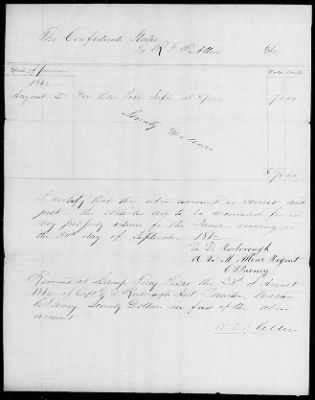 The Confederate States
To R T P Allen Dr
Date of Purchase Dols Cents
1862
August 28 For One Iron Safe at $70.00 70 00
Seventy Dollars
$70.00
I certify that the above account is correct and
just. the articles are to be accounted for in
my property return for the quarter ending on
the 30th day of September 1862
D. Rosborough
A Q. M. Allens Regmt
C S Army
Received at Camp Terry Texas the 28th of August
1862 of Capt D. Rosborough Asst Quarter Master
C S Army Seventy Dollars in full of the above
account
R T P Allen